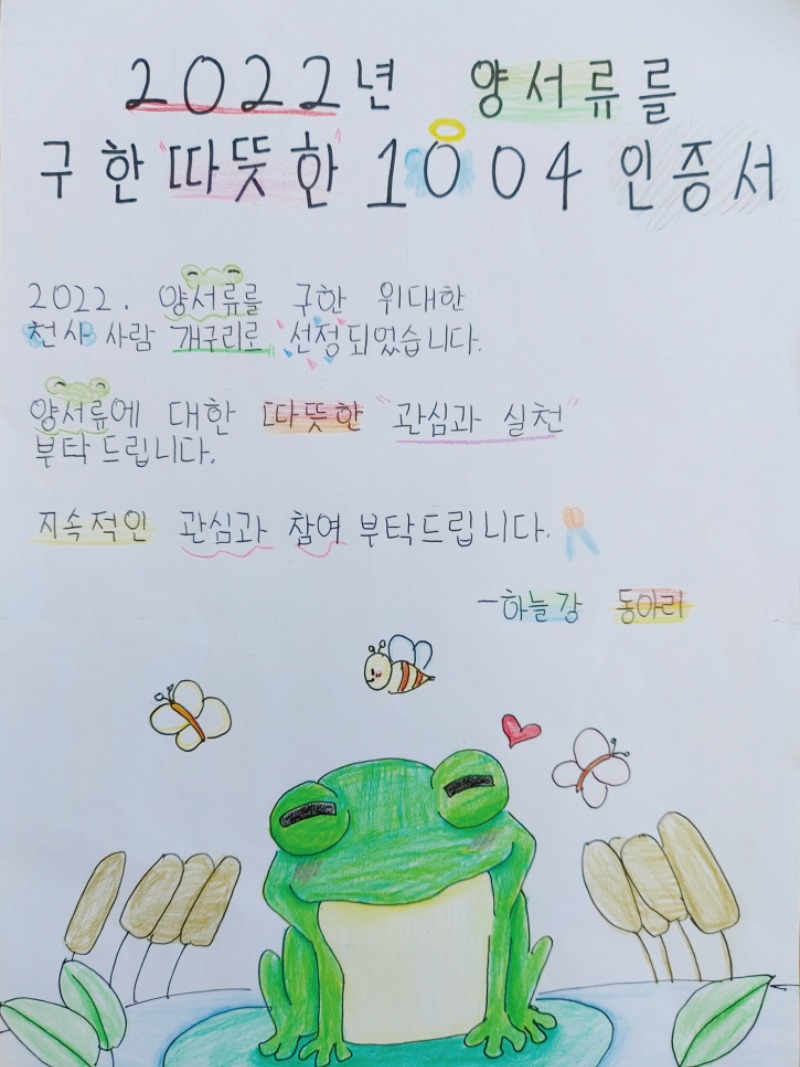 2022년 양서류를
구한 "따뜻한" 1004 인증서
2022. 양서류를 구한 위대한
천사 사람 개구리로 선정되었습니다.
양서류에 대한 따뜻한 "관심과 실천"
부탁드립니다.
지속적인 관심과 참여 부탁드립니다.
-하늘강 동아리